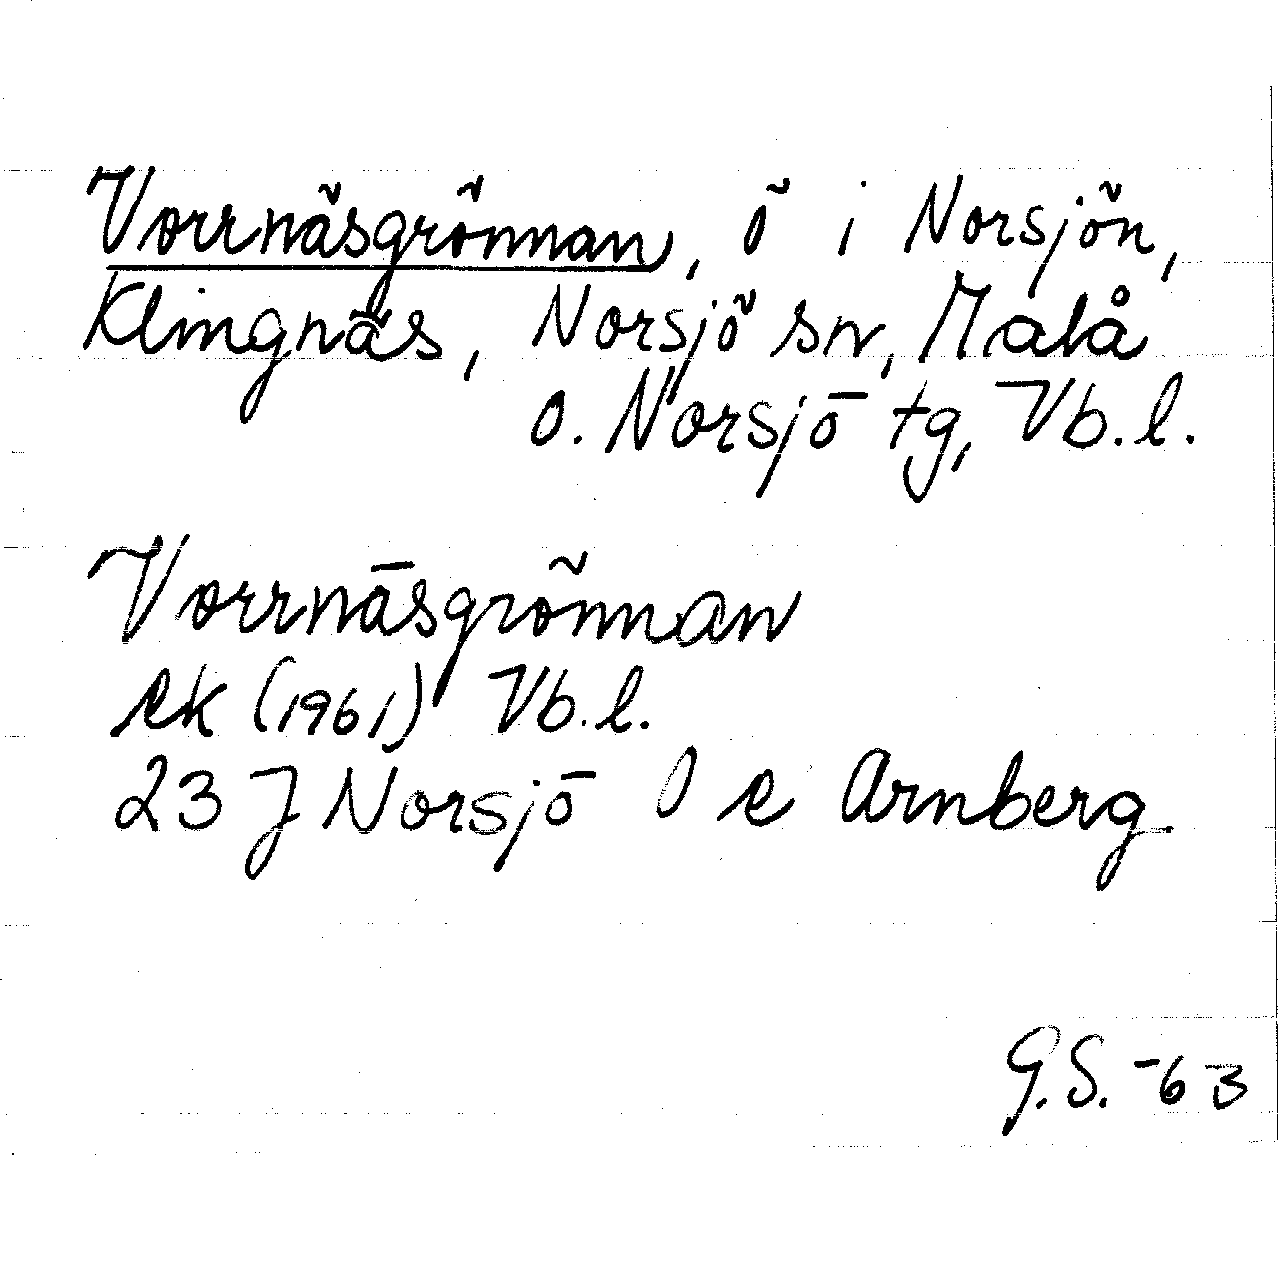 Vorrnäsgrönnan, ö i Norsjön,
Klingnäs, Norsjö sn, Malå
o. Norsjö tg, Vb.l.
Vorrnäsgrönnan
ek (1961) Vb.l.
23 J Norsjö O e Arnberg
G.S. -63